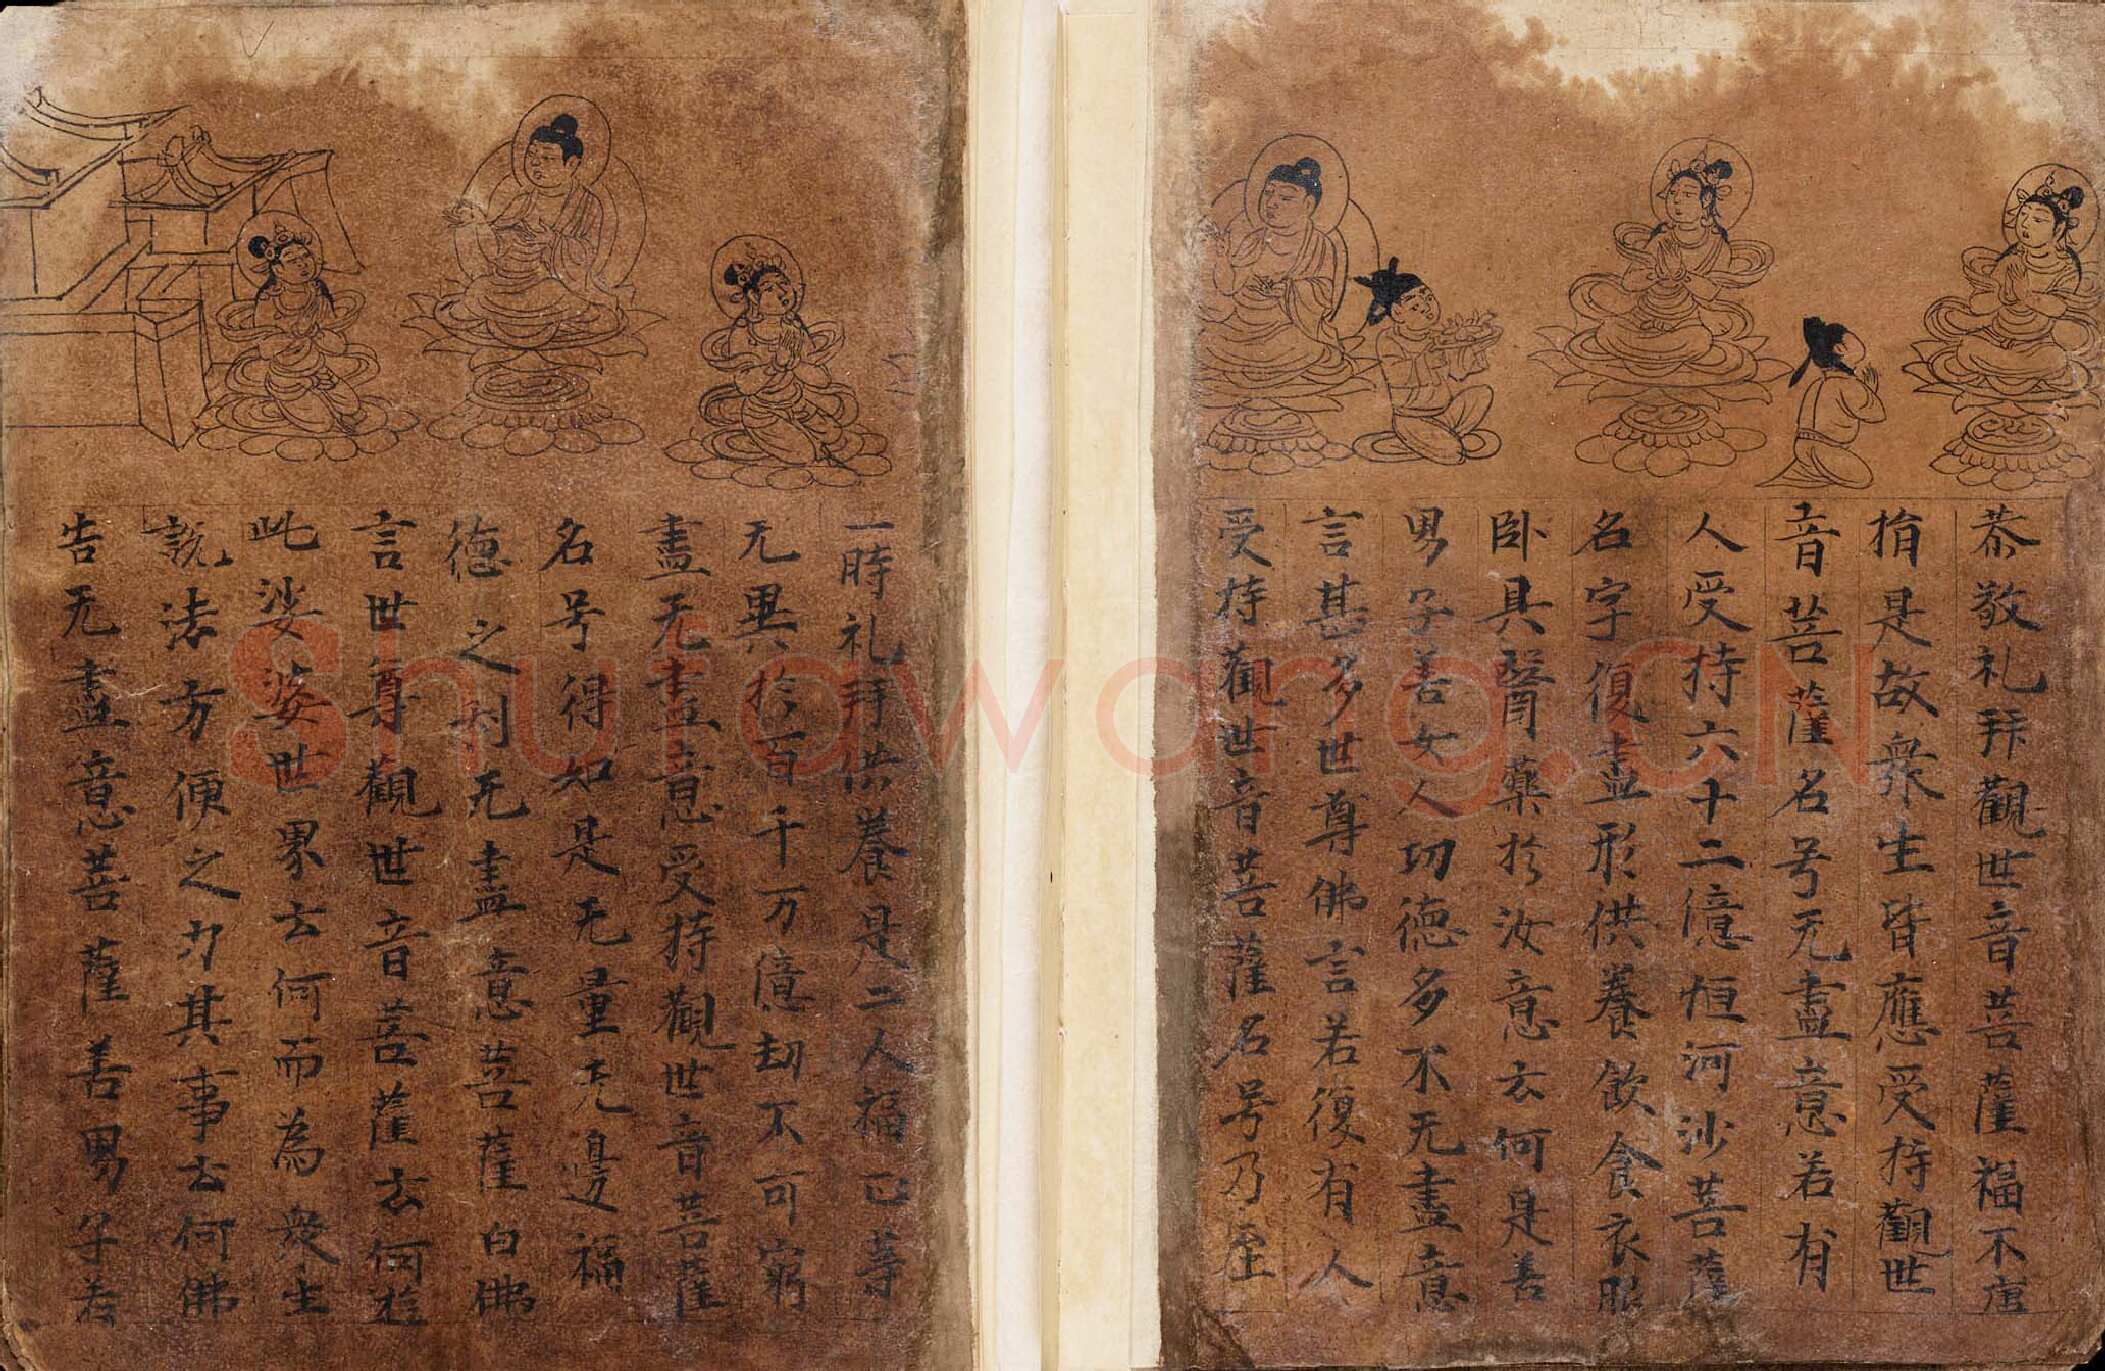 恭敬礼拜觀世音菩薩福不唐
捐是故衆生皆應受持觀世
音菩薩名号无盡意若有
人受持六十二億恒河沙菩薩
名字復盡形供養飲食衣服
卧具醫藥於汝意云何是善
男子善女人切德多不无盡意
言甚多世尊佛言若復有人
受持觀世音菩薩名号乃至
一時礼拜供養是二人福正等
无異於百千万億劫不可窮
盡无盡意受持觀世音菩薩
名号得如是无量无邊福
德之利无盡意菩薩白佛
言世尊觀世音菩薩云何遊
此娑婆世界云何而為衆生
説法方便之力其事云何佛
告无盡意菩薩善男子若
Shufawang.CN